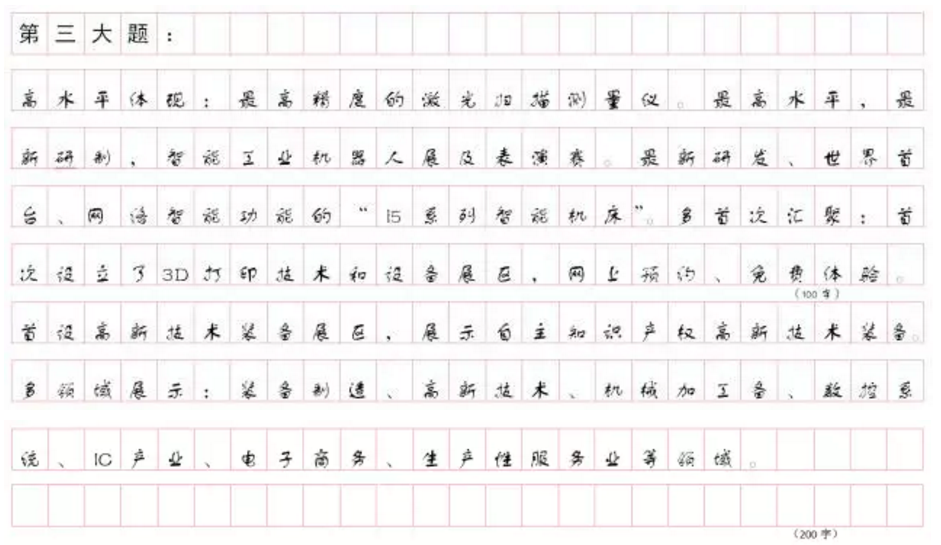 第三大题：
高水平体现：最高精度的激光扫描测量仪。最高水平，最
新研制，智能工业机器人展及表演赛。最新研发、世界首
台、网络智能功能的“I5系列智能机床”。多首次汇聚：首
次设立了3D打印技术和设备展区，网上预约、免费体验。
(100字)
首设高新技术装备展区，展示自主知识产权高新技术装备。
多领域展示：装备制造、高新技术、机械加工备、数控系
统、IC产业、电子商务、生产性服务业等领域。
(200字)